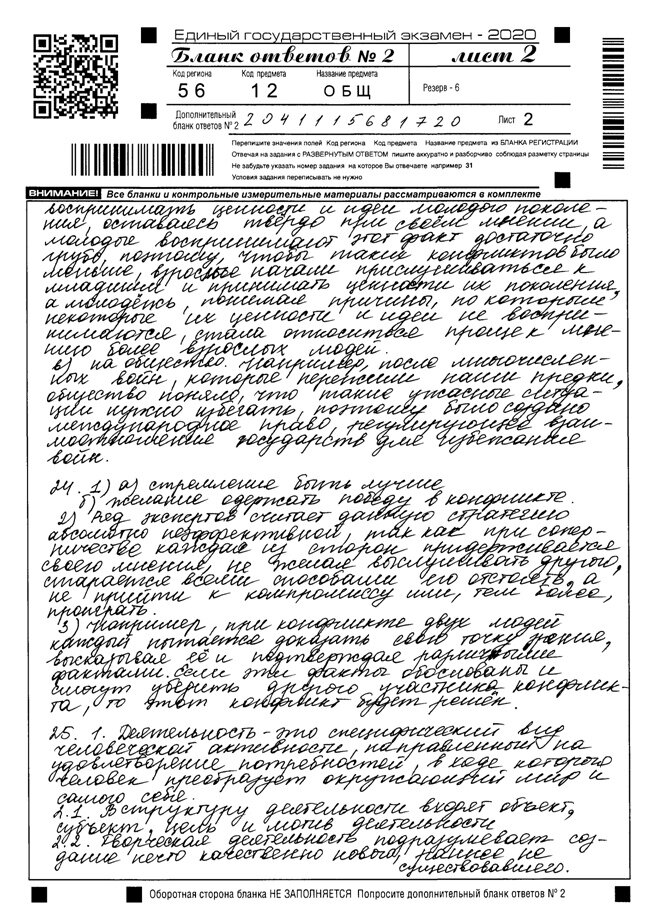 Единый государственный экзамен - 2020
Бланк ответов № 2 лист 2
Код региона Код предмета Название предмета
56 12 ОБЩ Резерв - 6
Дополнительный
бланк ответов № 2 2041115681720 Лист 2
Перепишите значения полей Код региона Код предмета Название предмета из БЛАНКА РЕГИСТРАЦИИ
Отвечая на задания с РАЗВЕРНУТЫМ ОТВЕТОМ пишите аккуратно и разборчиво соблюдая разметку страницы
Не забудьте указать номер задания на которое Вы отвечаете например 31
Условия задания переписывать не нужно
ВНИМАНИЕ! Все бланки и контрольные измерительные материалы рассматриваются в комплекте
воспринимать ценности и идеи молодого поколе-
ния, оставаясь твердо при своем мнении, а
молодые воспринимают этот факт достаточно
грубо, поэтому, чтобы таких конфликтов было
меньше, взрослые начали прислушиваться к
младшим и принимать ценности их поколения,
а молодежь, понимая причины, по которым
некоторые их ценности и идеи не воспри-
нимаются, стала относиться проще к мне-
нию более взрослых людей.
в) на общество. Например, после многочислен-
ных войн, которые пережили наши предки,
общество поняло, что такие ужасные ситуа-
ции нужно избегать, поэтому было создано
международное право, регулирующее взаи-
моотношение государств для избежания
войн.
24. 1) а) стремление быть лучше
б) желание одержать победу в конфликте.
2) Ряд экспертов считает данную стратегию
абсолютно неэффективной, так как при сопер-
ничестве каждая из сторон придерживается
своего мнения, не желая выслушивать другого,
старается всеми способами его отстоять, а
не прийти к компромиссу или, тем более,
проиграть.
3) Например, при конфликте двух людей
каждый пытается доказать свою точку зрения,
высказывая её и подтверждая различными
фактами. Если эти факты обоснованы и
смогут убедить другого участника конфлик-
та, то этот конфликт будет решён.
25. 1. Деятельность - это специфический вид
человеческой активности, направленный на
удовлетворение потребностей, в ходе которого
человек преобразует окружающий мир и
самого себя.
2.1. В структуру деятельности входят объект,
субъект, цель и мотив деятельности
2.2. Творческая деятельность подразумевает соз-
дание нечто качественно нового, раннее не
существовавшего.
Оборотная сторона бланка НЕ ЗАПОЛНЯЕТСЯ Попросите дополнительный бланк ответов № 2